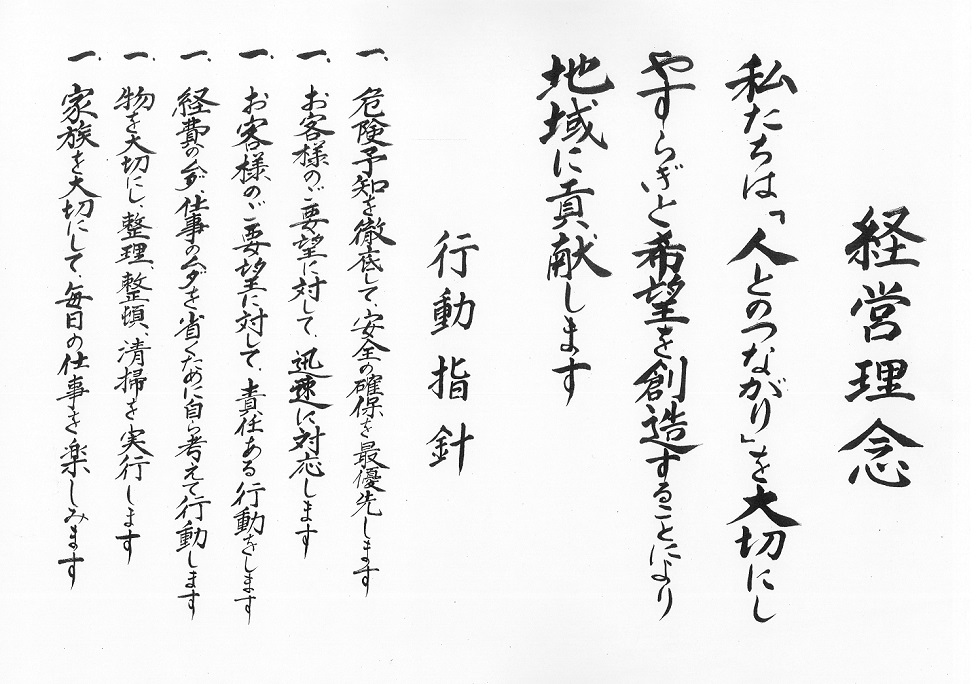 経営理念
私たちは「人とのつながり」を大切にし
やすらぎと希望を創造することにより
地域に貢献します
行動指針
一、危険予知を徹底して、安全の確保を最優先します
一、お客様のご要望に対して、迅速に対応します
一、お客様のご要望に対して、責任ある行動をします
一、経費のムダ、仕事のムダを省くために自ら考えて行動します
一、物を大切にし、整理、整頓、清掃を実行します
一、家族を大切にして毎日の仕事を楽しみます